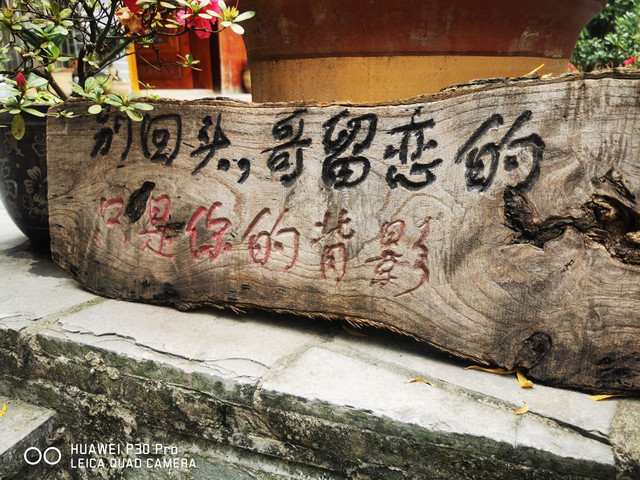 别回头,哥留恋的
只是你的背影
HUAWEI P30 Pro
LEICA QUAD CAMERA